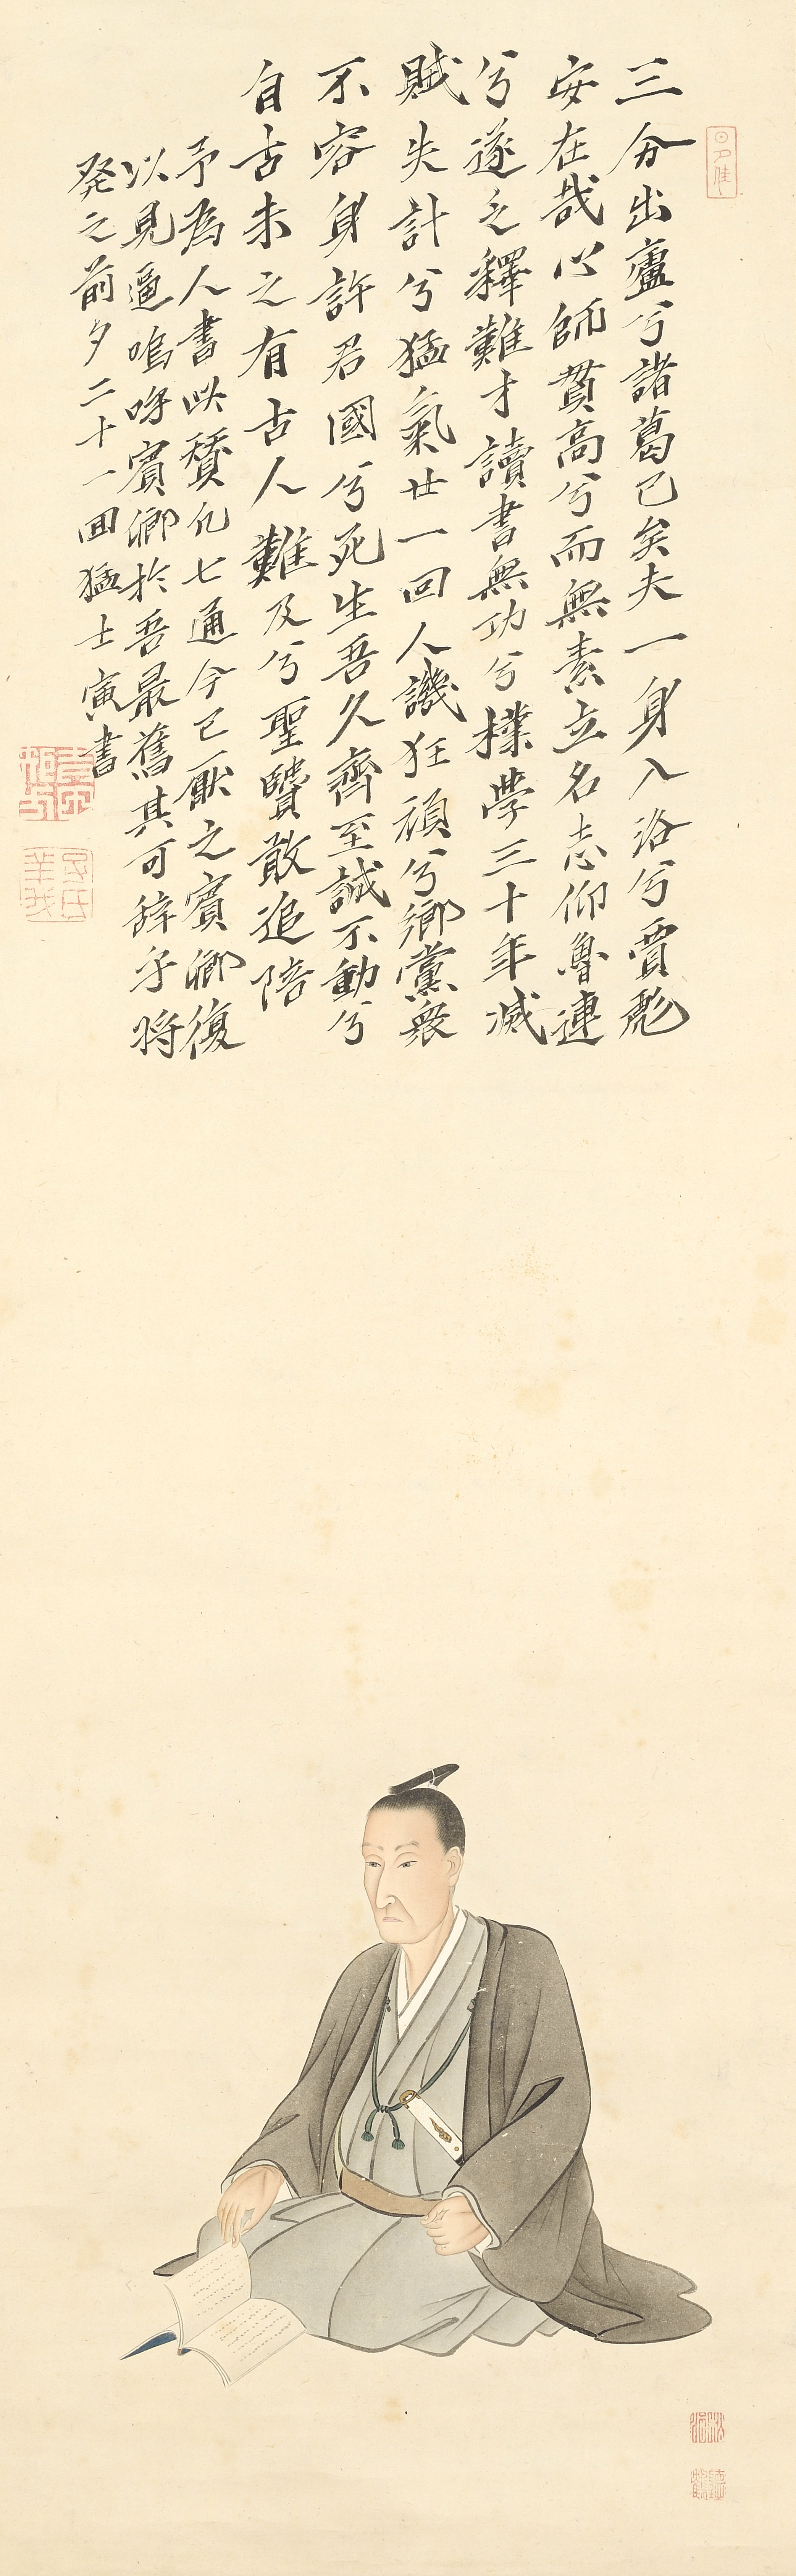 三分出廬兮諸葛已矣夫一身入洛兮賈彪
安在哉心師貫高兮而無素立名志仰魯連
兮遂乏釋難才讀書無功兮樸學三十年滅
賊失計兮猛氣廿一回人譏狂頑兮鄉黨衆
不容身許君國兮死生吾久齊至誠不動兮
自古未之有古人難及兮聖賢敢追陪
予為人書此賛凡七通今已厭之賓卿復
以見逼嗚呼賓卿於吾最舊其可辞乎将
発之前夕二十一回猛士寅書